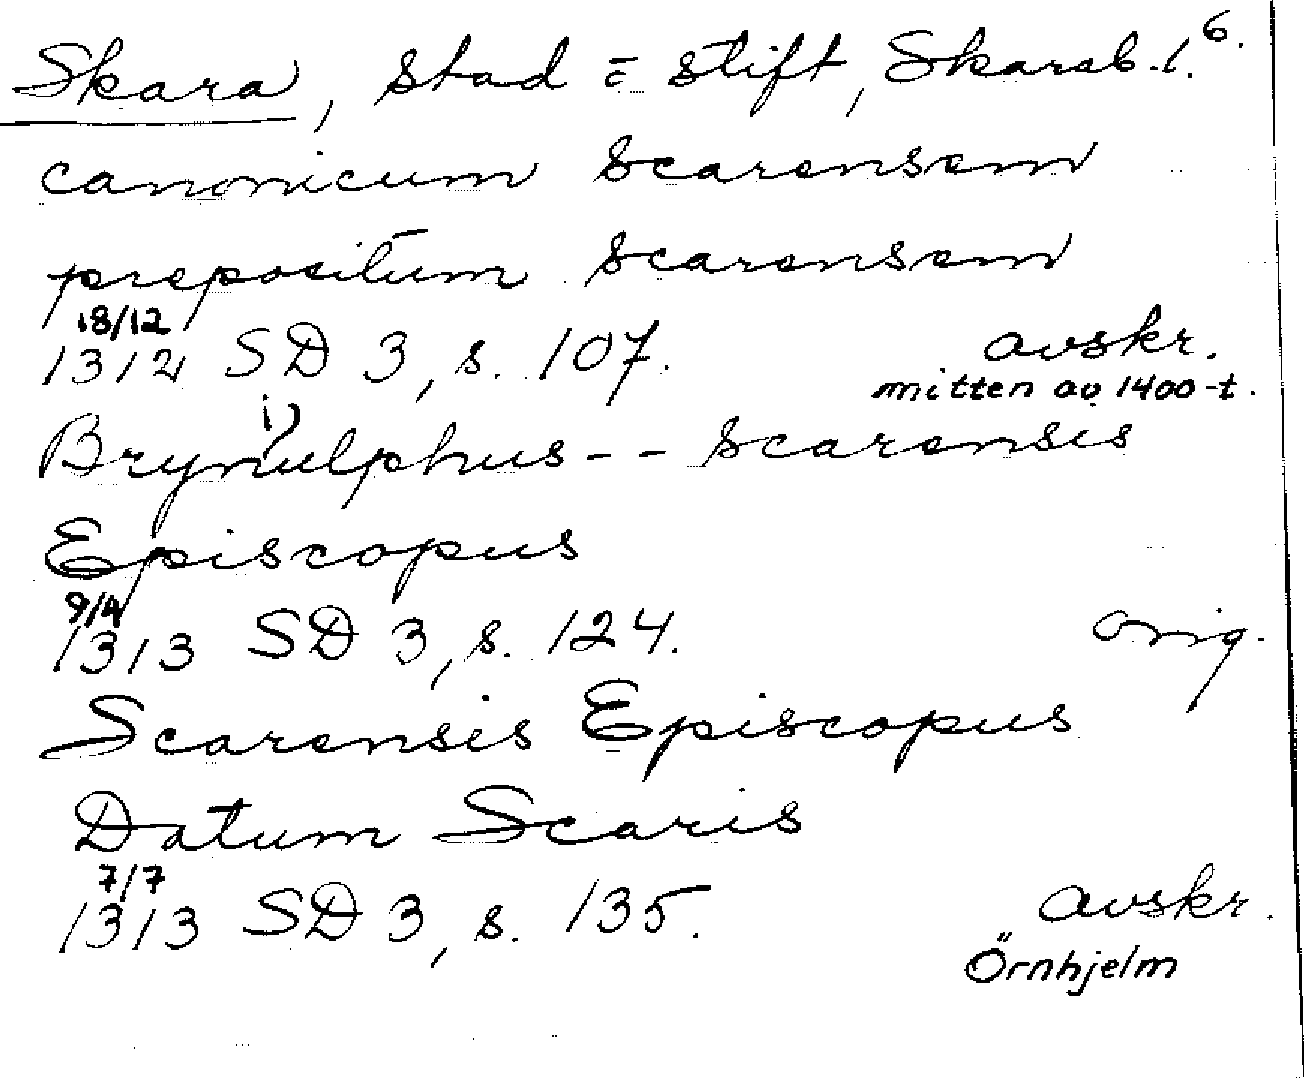 Skara, stad = stift, Skarab. l. 6.
canonicum scarensem
prepositum scarensem
18/12
1312 SD 3, s. 107. avskr.
mitten av 1400-t.
i)
Brynulphus -- scarensis
Episcopus
9/4
1313 SD 3, s. 124. orig.
Scarensis Episcopus
Datum Scaris
7/7
1313 SD 3, s. 135. avskr.
Örnhjelm